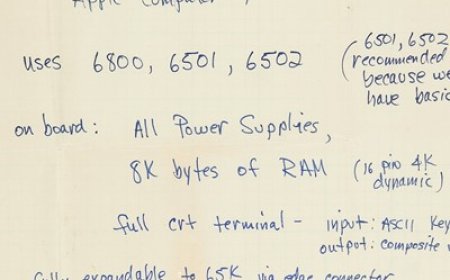 Apple Computer
uses 6800, 6501, 6502
(6501, 6502
recommended
because we
have basic
on board: All Power Supplies,
8K bytes of RAM (16 pin 4K
dynamic)
full crt terminal - input: ASCII Key
output: composite
fully expandable to 65K via edge connector